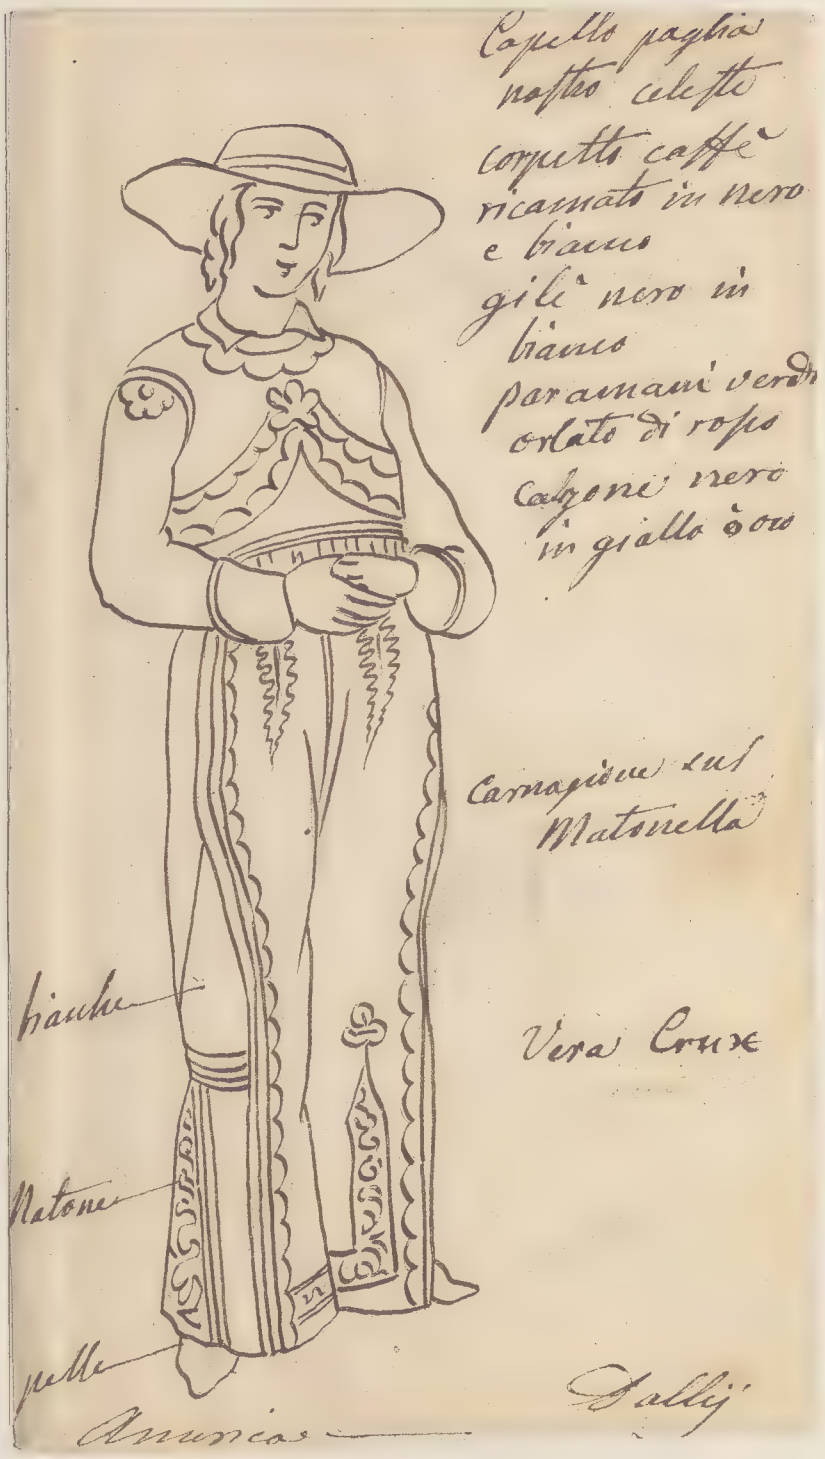 Capello paglia
nastro celeste
corpetto caffè
ricamato in nero
e bianco
gilè nero in
bianco
paramani verdi
orlato di rosso
Calzone nero
in giallo
Carnagione sul
Matonella
bianche
Vera Cruxe
Matone
pelle
Dallij
America